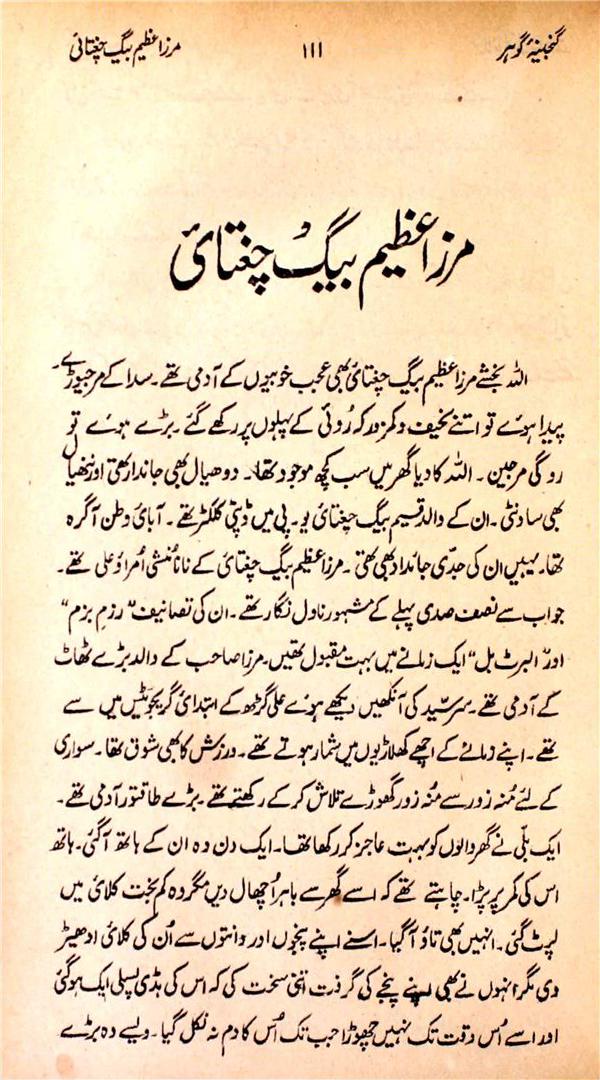 گنجینۂ گوہر ۱۱۱ مرزا عظیم بیگ چغتائی
مرزا عظیم بیگ چغتائی
اللہ بخشے مرزا عظیم بیگ چغتائی بھی عجب خوبیوں کے آدمی تھے۔ سدا کے مرجیوڑے۔
پیدا ہوئے تو اتنے نحیف و کمزور کہ رُوئی کے پہلوں پر رکھے گئے۔ بڑے ہوئے تو
روگی مرجین۔ اللہ کا دیا گھر میں سب کچھ موجود تھا۔ ددھیال بھی جاندار تھی اور ننھیال
بھی سادنٹی۔ ان کے والد قسیم بیگ چغتائی یو۔پی میں ڈپٹی کلکٹر تھے۔ آبائی وطن آگرہ
تھا۔ یہیں ان کی جدّی جائداد بھی تھی۔ مرزا عظیم بیگ چغتائی کے نانا مُنشی اُمراؤ علی تھے۔
جو اب سے نصف صدی پہلے کے مشہور ناول نگار تھے۔ ان کی تصانیف "رزم بزم"
اور "البرٹ بل" ایک زمانے میں بہت مقبول تھیں۔ مرزا صاحب کے والد بڑے ٹھاٹ
کے آدمی تھے۔ سرسیّد کی آنکھیں دیکھے ہوئے علی گڑھ کے ابتدائی گریجویٹس میں سے
تھے۔ اپنے زمانے کے اچھے کھلاڑیوں میں شمار ہوتے تھے۔ ورزش کا بھی شوق تھا۔ سواری
کے لئے مُنہ زور سے مُنہ زور گھوڑے تلاش کر کے رکھتے تھے۔ بڑے طاقتور آدمی تھے۔
ایک بلّی نے گھر والوں کو بہت عاجز کر رکھا تھا۔ ایک دن وہ ان کے ہاتھ آگئی۔ ہاتھ
اس کی کمر پر پڑا۔ چاہتے تھے کہ اسے گھر سے باہر اُچھال دیں مگر وہ کم بخت کلائی میں
لپٹ گئی۔ انہیں بھی تاؤ آگیا۔ اسنے اپنے پنجوں اور دانتوں سے اُن کی کلائی ادھیڑ
دی مگر انہوں نے بھی اپنے پنجے کی گرفت اتنی سخت کی کہ اس کی ہڈی پسلی ایک ہوگئی
اور اسے اُس وقت تک نہیں چھوڑا جب تک اُس کا دم نہ نکل گیا۔ ویسے وہ بڑے